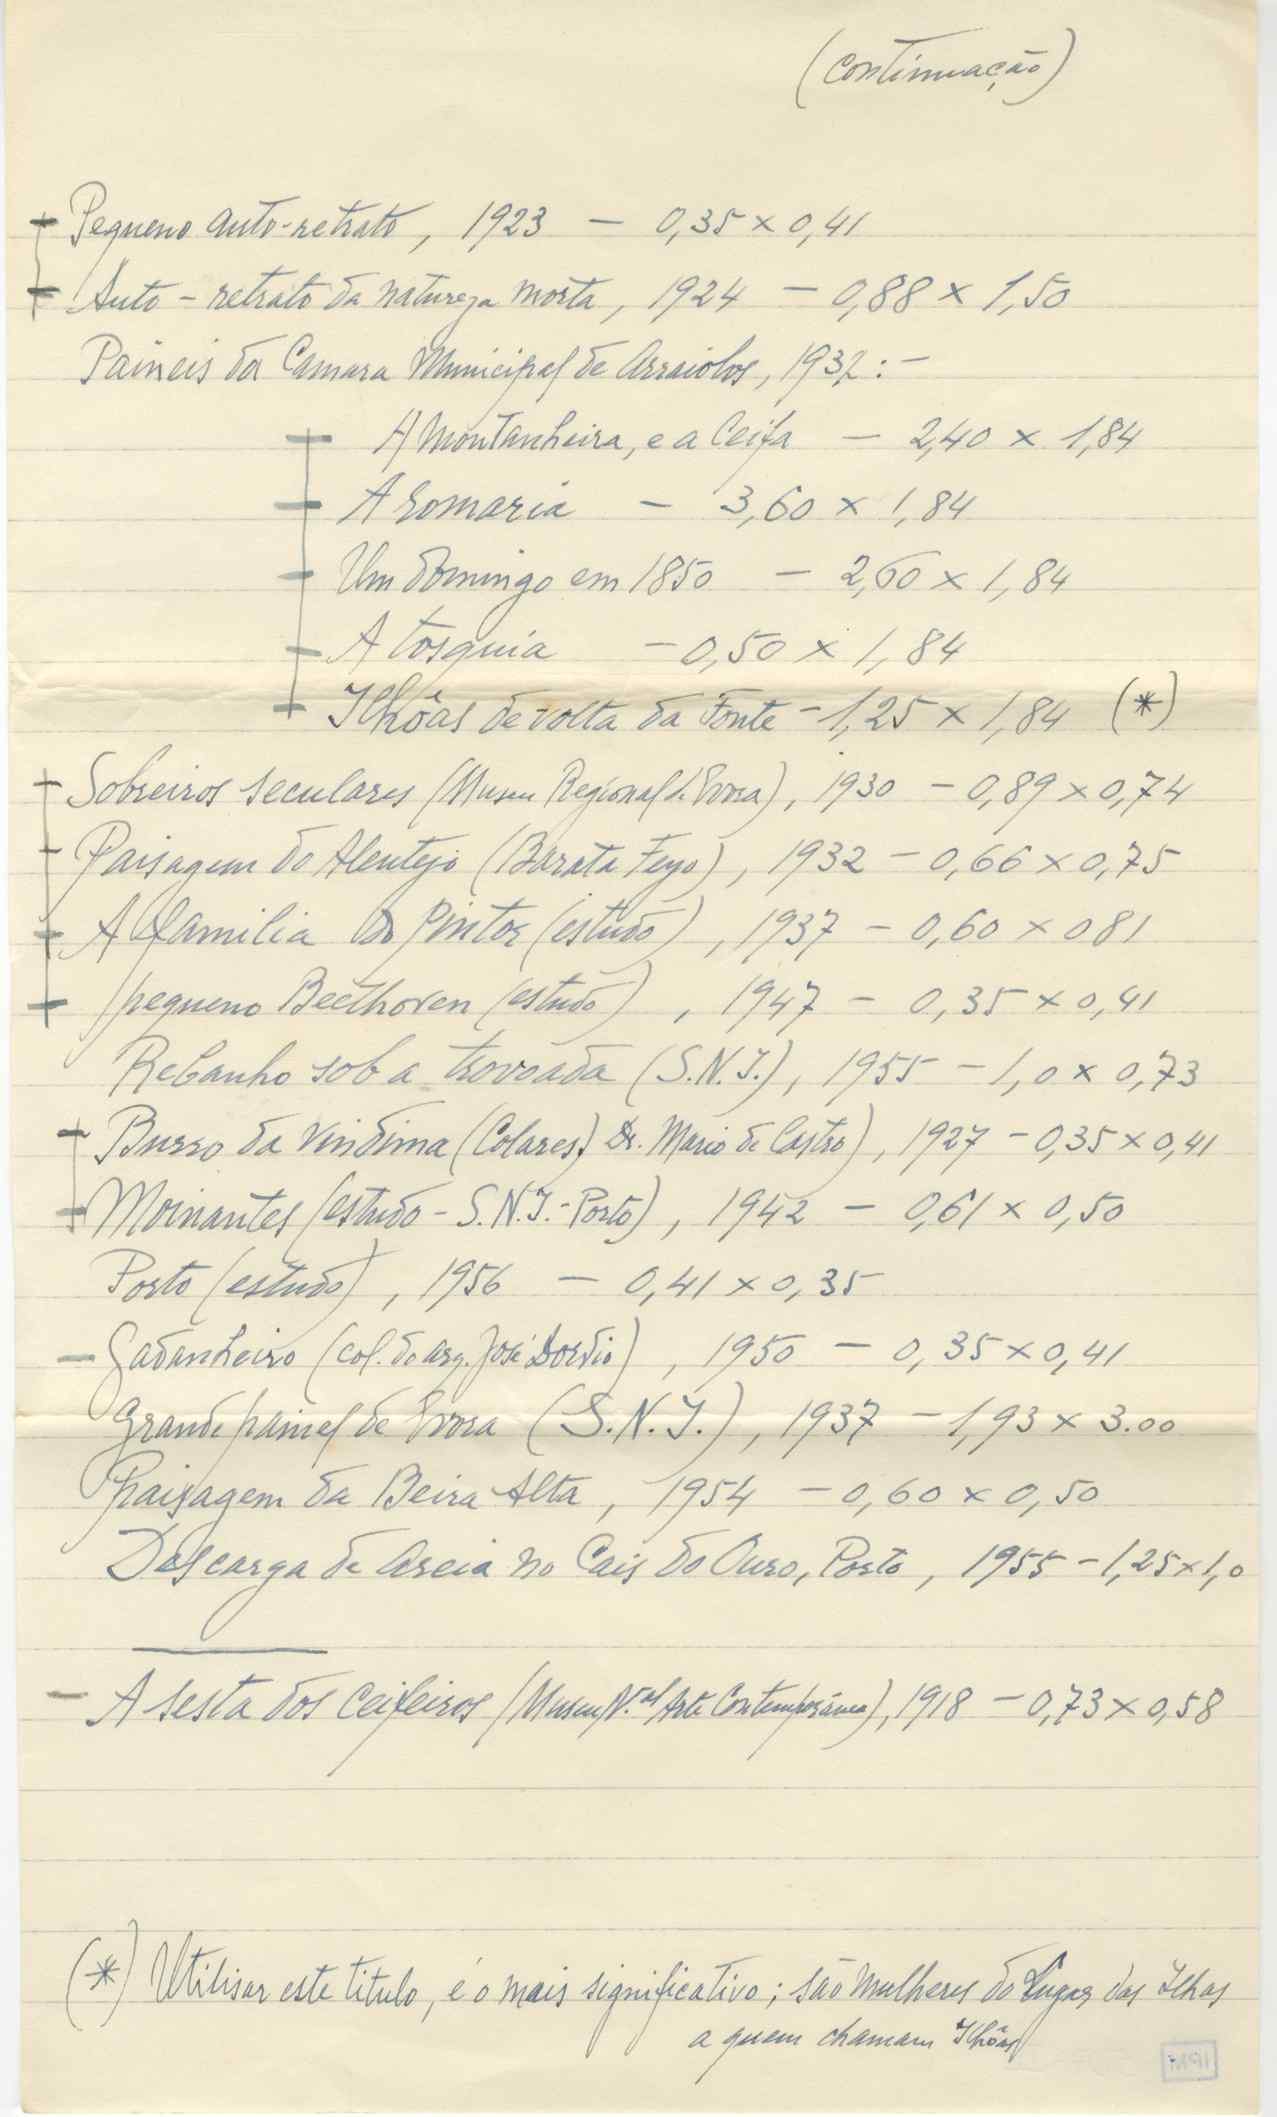 (continuação)
Pequeno auto-retrato, 1923 — 0,35 x 0,41
Auto-retrato da natureza morta, 1924 — 0,88 x 1,50
Paineis da Camara Municipal de Arraiolos, 1932:—
A Montanheira, e a Ceifa — 2,40 x 1,84
A Romaria — 3,60 x 1,84
Um domingo em 1850 — 2,60 x 1,84
A tosquia — 0,50 x 1,84
Ilhôas de volta da Fonte — 1,25 x 1,84 (*)
Sobreiros seculares (Museu Regional de Evora), 1930 — 0,89 x 0,74
Paisagem do Alentejo (Barata Feyo), 1932 — 0,66 x 0,75
A familia do Pintor (estudo), 1937 — 0,60 x 081
pequeno Beethoven (estudo), 1947 — 0,35 x 0,41
Rebanho sob a trovoada (S.N.I.), 1955 — 1,0 x 0,73
Burro da vindima (Colares, Dr. Mario de Castro), 1927 — 0,35 x 0,41
Moinantes (estudo - S.N.I. - Porto), 1942 — 0,61 x 0,50
Porto (estudo), 1956 — 0,41 x 0,35
— Gadanheiro (col. do arq. José Dordio), 1950 — 0,35 x 0,41
Grande painel de Evora (S.N.I.), 1937 — 1,93 x 3.00
Paisagem da Beira Alta, 1954 — 0,60 x 0,50
Descarga de Areia no Cais do Ouro, Porto, 1955 — 1,25 x 1,0
— A sesta dos Ceifeiros (Museu N.al Arte Contemporânea), 1918 — 0,73 x 0,58
(*) Utilisar este titulo, é o mais significativo; são mulheres do Lugar das Ilhas
a quem chamam Ilhôas
IPM